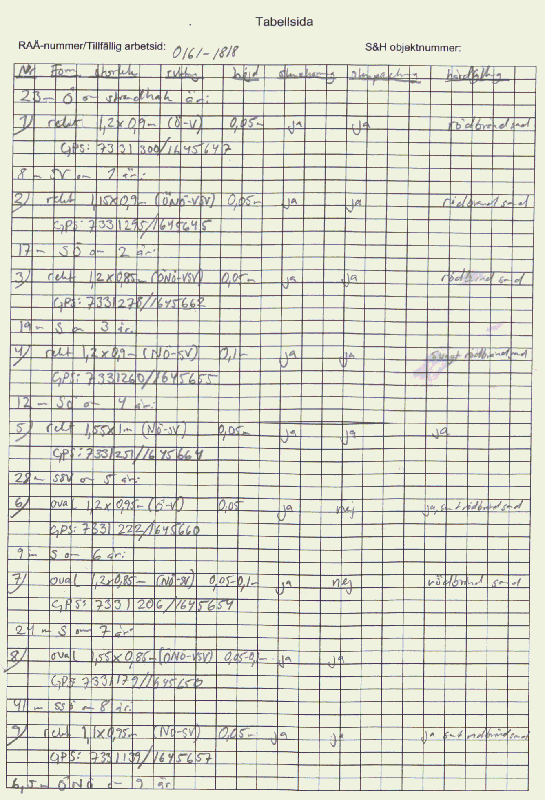 Tabellsida
RAÄ-nummer/Tillfällig arbetsid: 0161-1818 S&H objektnummer:
Nr Form storlek riktning höjd
23 m Ö om strandhak är:
1) rekt 1,2x0,9 m (Ö-V) 0,05 m ja ja rödbränd sand
GPS: 7331300/1645647
8 m SV om 1 är:
2) rekt 1,15x0,9 m (ÖNÖ-VSV) 0,05 m ja ja rödbränd sand
GPS: 7331295/1645645
17 m SÖ om 2 är:
3) rekt 1,2x0,85 m (ÖNÖ-VSV) 0,05 m ja ja rödbränd sand
GPS: 7331278/1645662
19 m S om 3 är:
4) rekt 1,2x0,9 m (NÖ-SV) 0,1 m ja ja svagt rödbränd sand
GPS: 7331260/1645655
12 m SÖ om 4 är:
5) rekt 1,55x1 m (NÖ-SV) 0,05 m ja ja ja
GPS: 7331251/1645664
28 m SSV om 5 är:
6) oval 1,2x0,95 m (Ö-V) 0,05 ja nej ja, rödbränd sand
GPS: 7331222/1645660
9 m S om 6 är:
7) oval 1,2x0,85 m (NÖ-SV) 0,05-0,1 m ja nej rödbränd sand
GPS: 7331206/1645654
24 m S om 7 är:
8) oval 1,55x0,85 m (ÖNÖ-VSV) 0,05-0,1 m ja ja
GPS 7331179/1645650
41 m SSÖ om 8 är:
9) rekt 1,1x0,95 m (NÖ-SV) 0,05 m ja ja ja rödbränd sand
GPS: 7331139/1645657
6,5 m ÖNÖ om 9 är